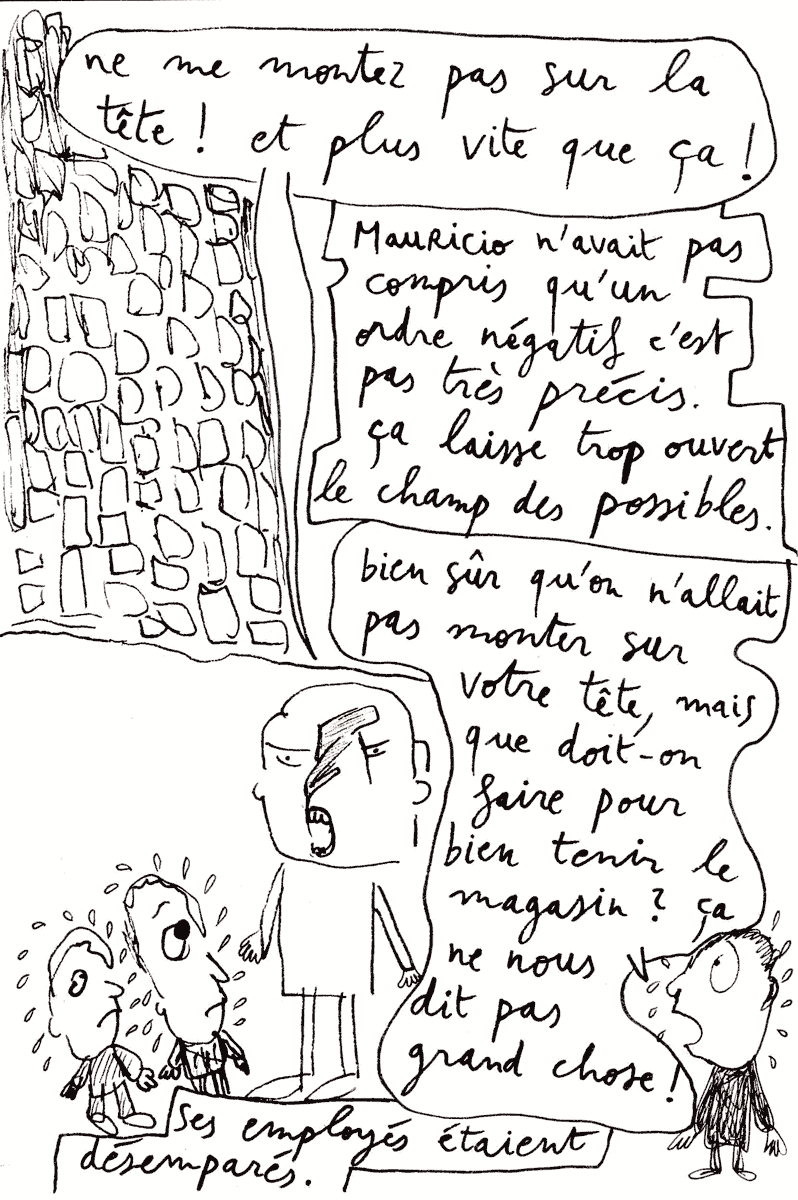 ne me montez pas sur la
tête ! et plus vite que ça !
Mauricio n'avait pas
compris qu'un
ordre négatif c'est
pas très précis.
ça laisse trop ouvert
le champ des possibles.
bien sûr qu'on n'allait
pas monter sur
votre tête, mais
que doit-on
faire pour
bien tenir le
magasin ? ça
ne nous
dit pas
grand chose !
Ses employés étaient
désemparés.